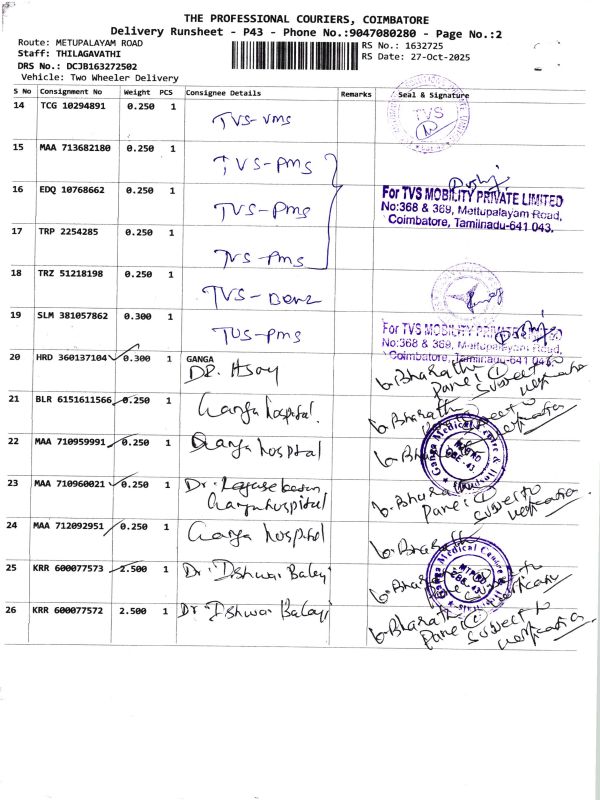 THE PROFESSIONAL COURIERS, COIMBATORE
Delivery Runsheet - P43 - Phone No.:9047080280 - Page No.:2
Route: METUPALAYAM ROAD
Staff: THILAGAVATHI
DRS No.: DCJB163272502
Vehicle: Two Wheeler Delivery
RS No.: 1632725
RS Date: 27-Oct-2025
S No Consignment No Weight PCS Consignee Details Remarks Seal & Signature
14 TCG 10294891 0.250 1 TVS-vms TVS
15 MAA 713682180 0.250 1 TVS-pms
16 EDQ 10768662 0.250 1 TVS-pms
For TVS MOBILITY PRIVATE LIMITED
No:368 & 369, Mettupalayam Road,
Coimbatore, Tamilnadu-641 043.
17 TRP 2254285 0.250 1 TVS-pms
18 TRZ 51218198 0.250 1 TVS-Benz
19 SLM 381057862 0.300 1 TVS-pms
For TVS MOBILITY PRIVATE LIMITED
No:368 & 369, Mettupalayam Road,
Coimbatore, Tamilnadu-641 043.
20 HRD 360137104 0.300 1 GANGA
DR. G. Bharathi
Panel subject to
verification
21 BLR 6151611566 0.250 1 Ganga hospital. G. Bharathi
subject to
verification
22 MAA 710959991 0.250 1 Ganga hospital G. Bharathi
Ganga Medical Centre &
23 MAA 710960021 0.250 1 Dr. G. Bharathi
Ganga hospital Panel subject to
verification
24 MAA 712092951 0.250 1 Ganga hospital G. Bharathi
Ganga Medical Centre &
25 KRR 600077573 2.500 1 Dr. Ishwar Balaji G. Bharathi
subject to
26 KRR 600077572 2.500 1 Dr. Ishwar Balaji G. Bharathi
Panel subject to
verification